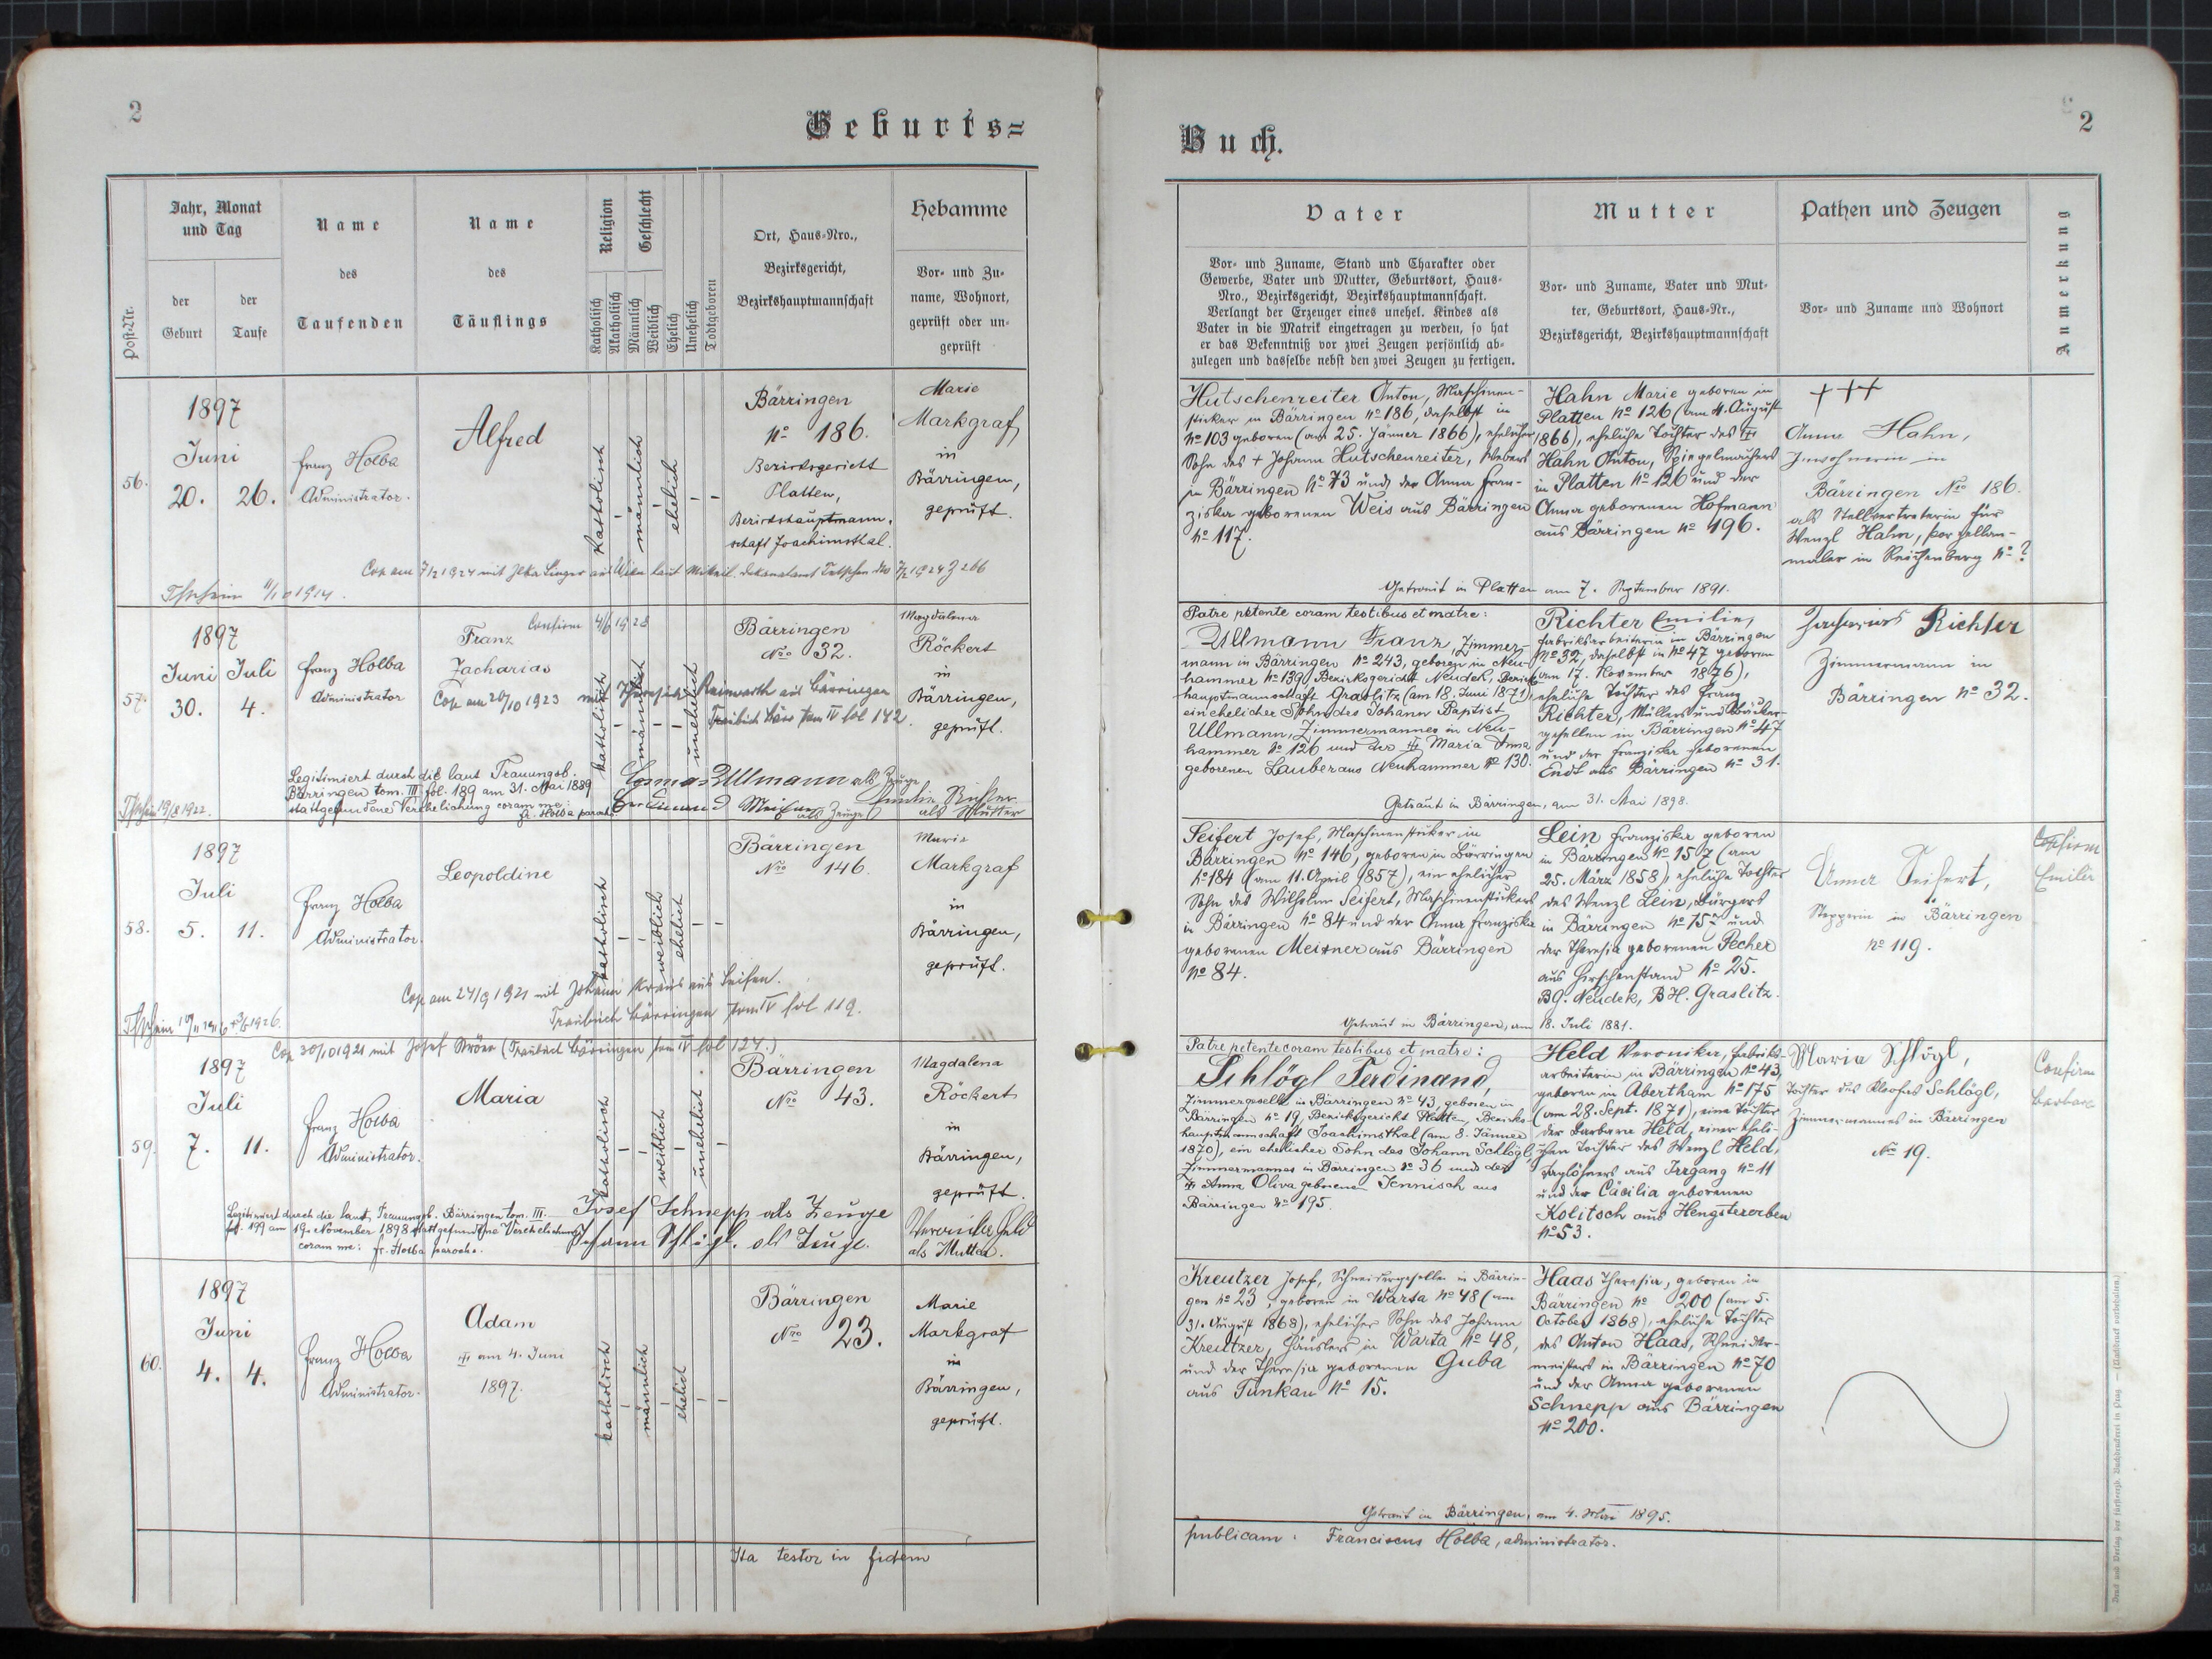 2
Geburts=
Post-Nr.
Jahr, Monat
und Tag
der
Geburt
der
Taufe
Name
des
Taufenden
Name
des
Täuflings
Religion
Katholisch
Akatholisch
Geschlecht
Männlich
Weiblich
Ehelich
Unehelich
Todtgeboren
Ort, Haus-Nro.,
Bezirksgericht,
Bezirkshauptmannschaft
Hebamme
Vor- und Zu-
name, Wohnort,
geprüft oder un-
geprüft
56.
1897
Juni
20. 26.
Franz Holba
Administrator.
Alfred
katholisch
männlich
ehelich
Bärringen
No 186.
Bezirksgericht
Platten,
Bezirkshauptmann-
schaft Joachimsthal.
Marie
Markgraf,
in
Bärringen,
geprüft.
Cop am 7/2 1924 mit Singer aus Wien laut
57.
1897
Juni Juli
30. 4.
Franz Holba
Administrator
Confirm 4/6 1928
Franz
Zacharias
Cop am 20/10 1923 mit Theresia Reinwarth aus Bärringen
Traubuch Bärr tom IV fol 142.
katholisch
männlich
unehelich
Bärringen
Nro 32.
Magdalena
Röckert
in
Bärringen,
geprüft.
Legitimiert durch die laut Trauungsb.
Bärringen tom. III fol. 189 am 31. Mai 1889
stattgefundene Verehelichung coram me:
fr. Holba paroch.
Ullmann als Zeuge
als Zeuge
Emilie Richter
als Mutter
58.
1897
Juli
5. 11.
Franz Holba
Administrator.
Leopoldine
katholisch
weiblich
ehelich
Bärringen
Nro 146.
Marie
Markgraf
in
Bärringen,
geprüft.
Cop am 24/9 1921 mit Johann Kraus aus Seifen.
Traubuch Bärringen tom IV fol 119.
59.
Cop 30/10 1921 mit Josef (Traubuch Bärringen tom IV fol 124.)
1897
Juli
7. 11.
Franz Holba
Administrator.
Maria
katholisch
weiblich
unehelich
Bärringen
Nro 43.
Magdalena
Röckert
in
Bärringen,
geprüft.
Legitimiert durch die laut Trauungsb. Bärringen tom. III.
fol. 199 am 19. November 1898 stattgefundene Verehelichung
coram me: fr. Holba paroch.
Josef Schnepp als Zeuge
Johann Schlögl. als Zeuge.
Veronika Held
als Mutter.
60.
1897
Juni
4. 4.
Franz Holba
Administrator.
Adam
am 4. Juni
1897.
katholisch
männlich
ehelich
Bärringen
Nro 23.
Marie
Markgraf
in
Bärringen,
geprüft.
Ita testor in fidem
Buch.
2
Vater
Vor- und Zuname, Stand und Charakter oder
Gewerbe, Vater und Mutter, Geburtsort, Haus-
Nro., Bezirksgericht, Bezirkshauptmannschaft.
Verlangt der Erzeuger eines unehel. Kindes als
Vater in die Matrik eingetragen zu werden, so hat
er das Bekenntniß vor zwei Zeugen persönlich ab-
zulegen und dasselbe nebst den zwei Zeugen zu fertigen.
Mutter
Vor- und Zuname, Vater und Mut-
ter, Geburtsort, Haus-Nr.,
Bezirksgericht, Bezirkshauptmannschaft
Pathen und Zeugen
Vor- und Zuname und Wohnort
Anmerkung
Hutschenreiter Anton, Maschinen-
sticker in Bärringen No 186, daselbst in
No 103 geboren (am 25. Jänner 1866), ehelicher
Sohn des + Johann Hutschenreiter, Webers
in Bärringen No 73 und der Anna Fran-
ziska geborenen Weis aus Bärringen
No 117.
Hahn Marie geboren in
Platten No 126 (am 4. August
1866), eheliche Tochter des
Hahn Anton, Spiegelmachers
in Platten No 126 und der
Anna geborenen Hofmann
aus Bärringen No 196.
+++
Anna Hahn,
Inwohnerin in
Bärringen Nro 186.
als Stellvertreterin für
Wenzl Hahn, Porzellan-
maler in Reichenberg No ?
Getraut in Platten am 7. September 1891.
Patre petente coram testibus et matre:
Ullmann Franz, Zimmer-
mann in Bärringen No 243, geboren in Neu-
hammer No 139 Bezirksgericht Neudek, Bezirks-
hauptmannschaft Graslitz (am 18. Juni 1871),
ein ehelicher Sohn des Johann Baptist
Ullmann, Zimmermannes in Neu-
hammer No 126 und der Maria Anna
geborenen Lauber aus Neuhammer No 130.
Richter Emilie,
Fabriksarbeiterin in Bärringen
No 32, daselbst in No 47 geboren
(am 17. November 1876),
eheliche Tochter des Franz
Richter, Müllers und Bäcker-
gesellen in Bärringen No 47
und der Franziska geborenen
Endt aus Bärringen No 31.
Zacharias Richter
Zimmermann in
Bärringen No 32.
Getraut in Bärringen, am 31. Mai 1898.
Seifert Josef, Maschinensticker in
Bärringen No 146, geboren in Bärringen
No 184 (am 11. April 1857), ein ehelicher
Sohn des Wilhelm Seifert, Maschinenstickers
in Bärringen No 84 und der Anna Franziska
geborenen Meixner aus Bärringen
No 84.
Lein Franziska geboren
in Bärringen No 157 (am
25. März 1858), eheliche Tochter
des Wenzl Lein, Bürgers
in Bärringen No 157 und
der Theresia geborenen Pecher
aus Hirschenstand No 25.
BG. Neudek, BH. Graslitz.
Anna Seifert,
Stepperin in Bärringen
No 119.
Confirm
Emilie
Getraut in Bärringen, am 18. Juli 1881.
Patre petente coram testibus et matre:
Schlögl Ferdinand,
Zimmergeselle in Bärringen No 43, geboren in
Bärringen No 19, Bezirksgericht Platten, Bezirks-
hauptmannschaft Joachimsthal (am 8. Jänner
1870), ein ehelicher Sohn des Johann Schlögl,
Zimmermannes in Bärringen No 36 und der
Anna Oliva geborenen Jennisch aus
Bärringen No 195.
Held Veronika, Fabriks-
arbeiterin in Bärringen No 43,
geboren in Abertham No 175
(am 28. Sept. 1871), eine Tochter
der Barbara Held, einer eheli-
chen Tochter des Wenzl Held,
Taglöhners aus Irrgang No 11
und der Cäcilia geborenen
Kolitsch aus Hengstererben
No 53.
Maria Schlögl,
Tochter des Kleofas Schlögl,
Zimmermannes in Bärringen
No 19.
Confirm
Barbara
Kreutzer Josef, Schneidergeselle in Bärrin-
gen No 23, geboren in Warta No 48 (am
31. August 1868), ehelicher Sohn des Johann
Kreutzer, Häuslers in Warta No 48,
und der Theresia geborenen Guba
aus Tunkau No 15.
Haas Theresia, geboren in
Bärringen No 200 (am 5.
October 1868), eheliche Tochter
des Anton Haas, Schneider-
meisters in Bärringen No 70
und der Anna geborenen
Schnepp aus Bärringen
No 200.
Getraut in Bärringen, am 4. 1895.
publicam: Franciscus Holba, administrator.